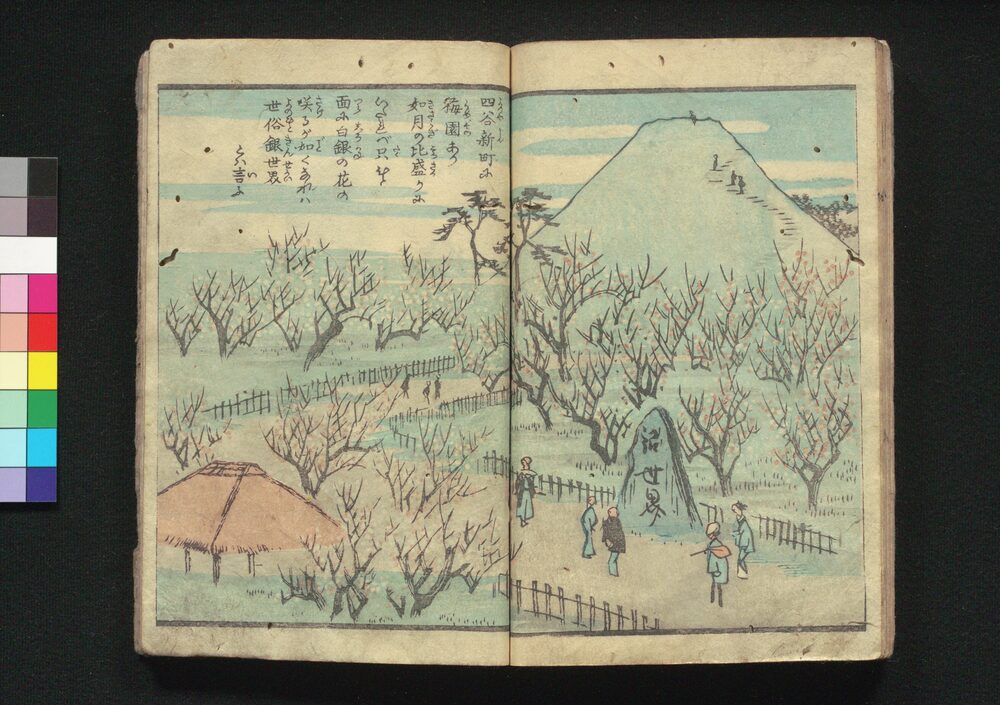 四谷新町に
梅園あり
如月の比盛りに
いたれバ只
面に白銀の花の
咲るが如くなれハ
世俗銀世界
と言ふ
銀世界